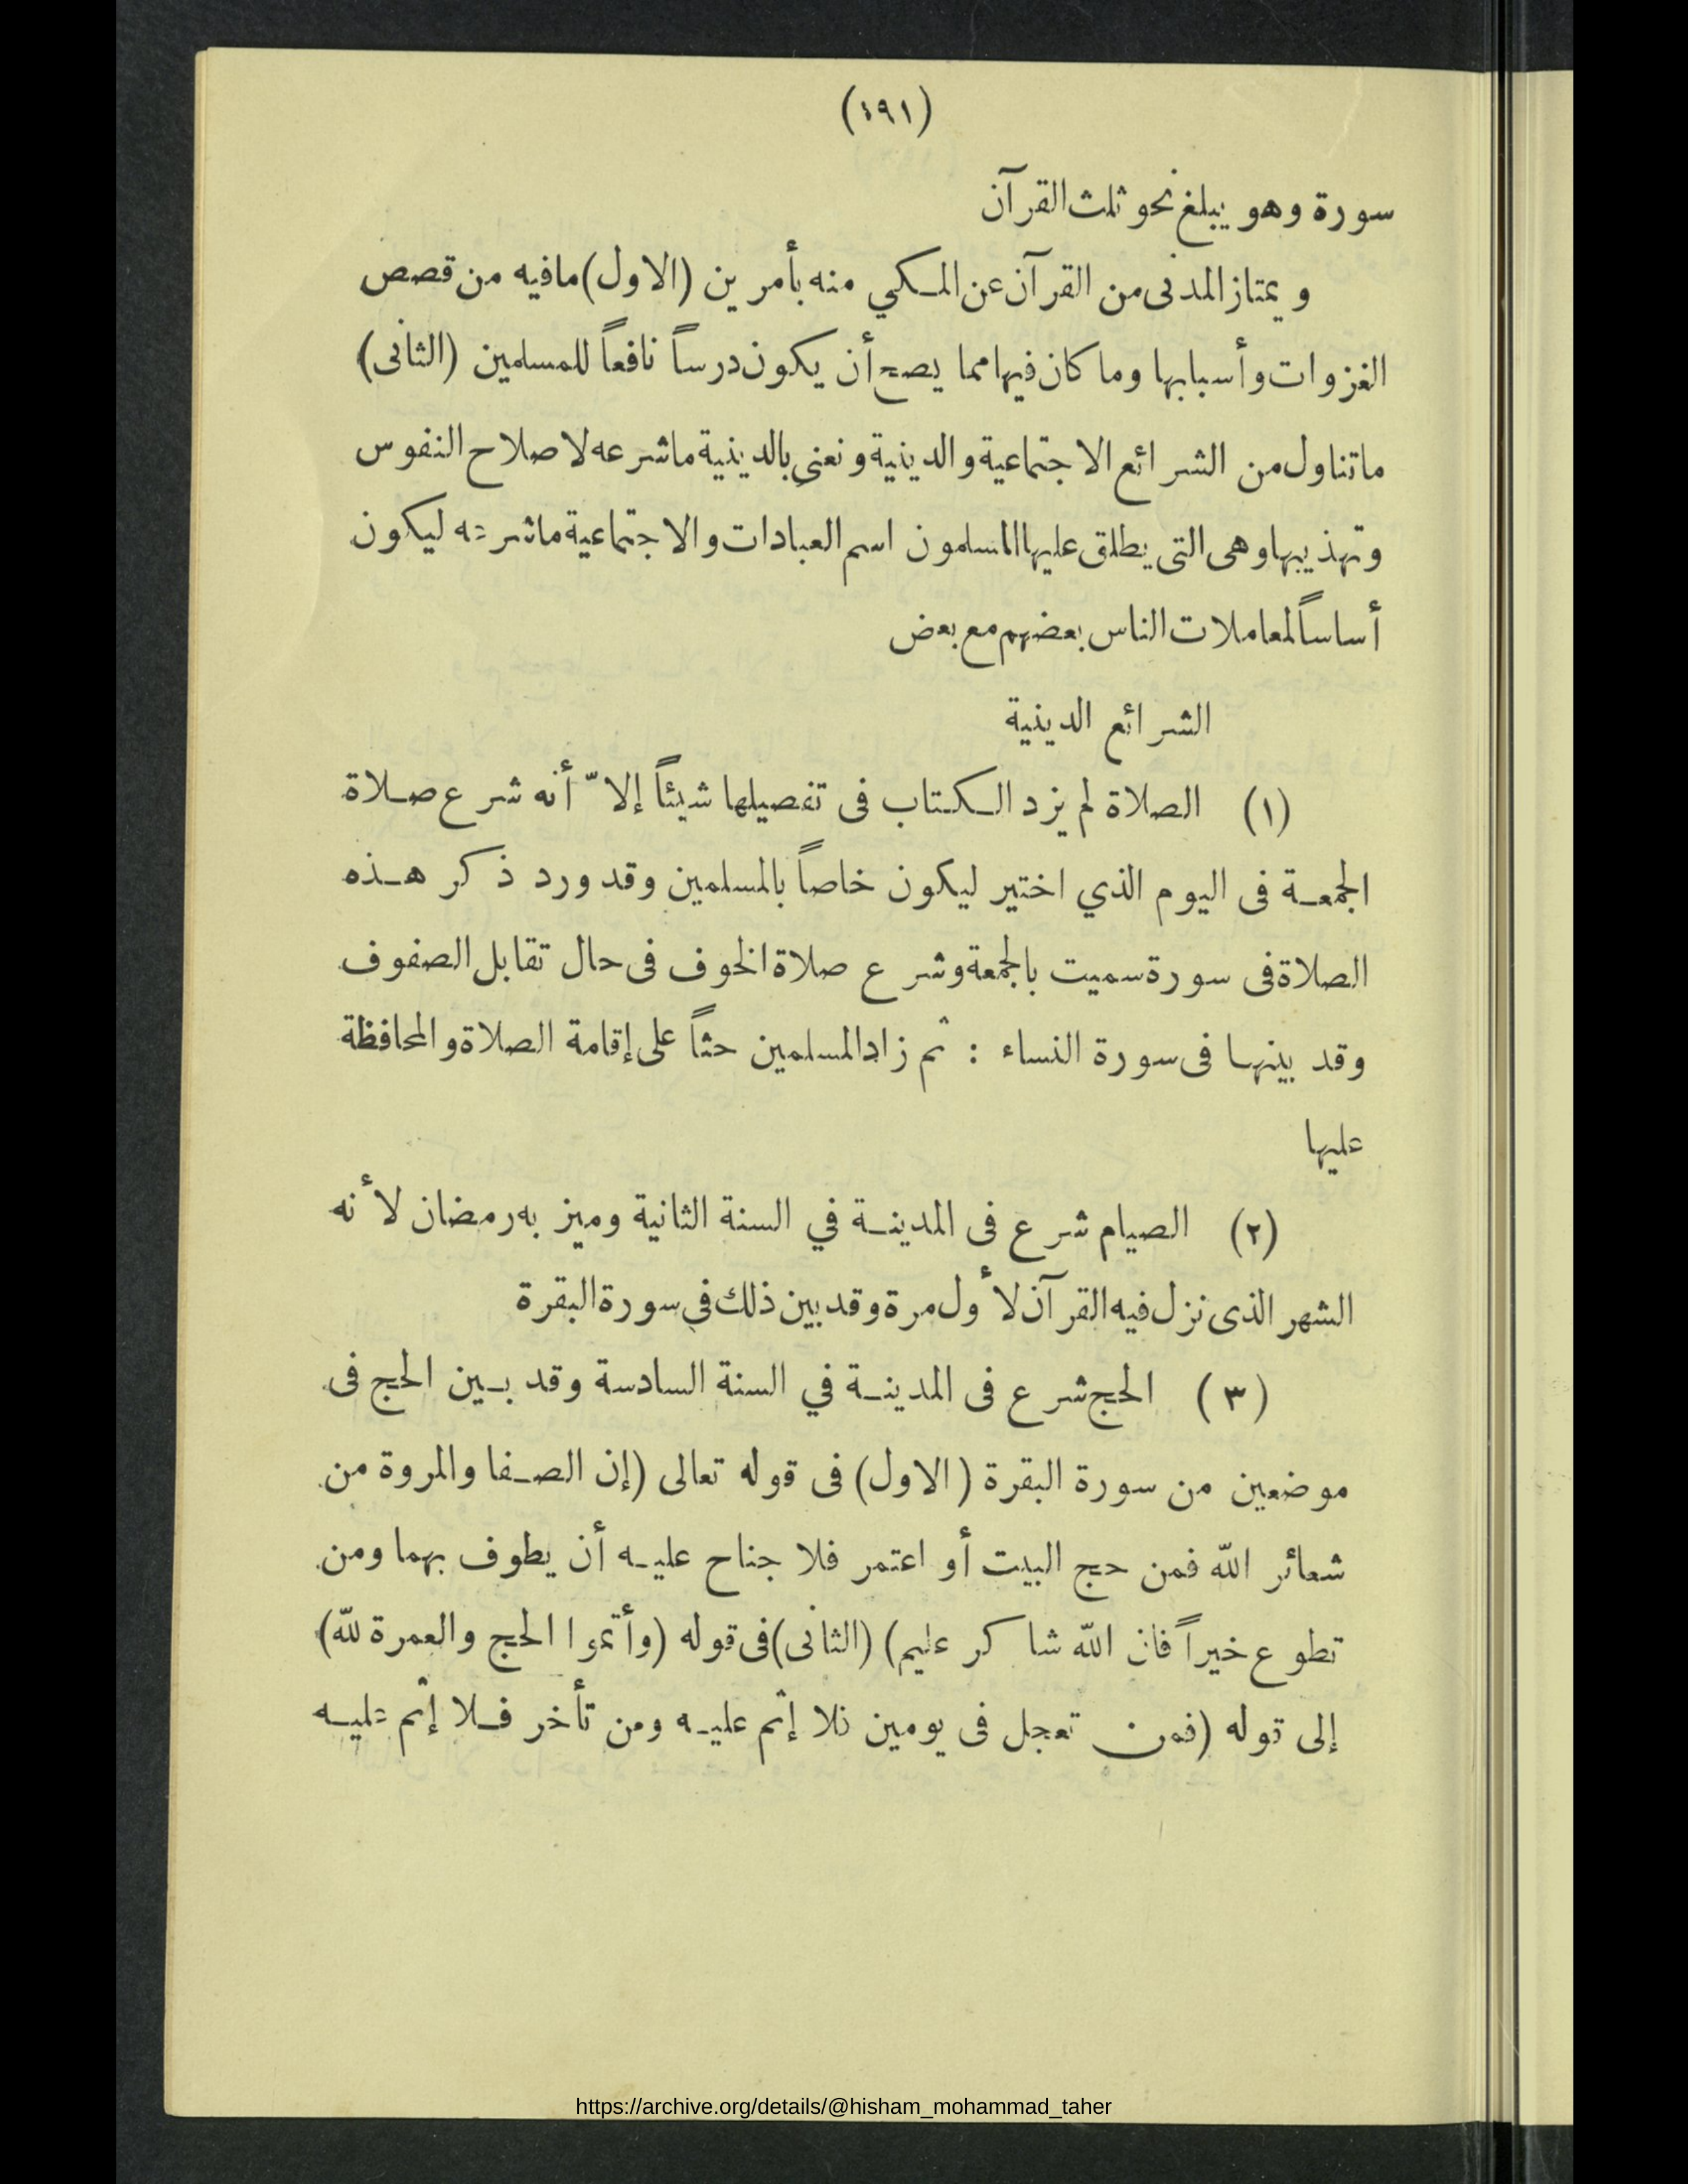 (١٩١)
سورة وهو يبلغ نحو ثلث القرآن
ويمتاز المدنى من القرآن عن المكي منه بأمرين (الاول) مافيه من قصص
الغزوات وأسبابها وما كان فيها مما يصح أن يكون درساً نافعاً للمسلمين (الثانى)
ماتناول من الشرائع الاجتماعية والدينية ونعني بالدينية ماشرعه لاصلاح النفوس
وتهذيبها وهى التى يطلق عليها المسلمون اسم العبادات والاجتماعية ماشرعه ليكون
أساساً لمعاملات الناس بعضهم مع بعض
الشرائع الدينية
(١) الصلاة لم يزد الكتاب فى تفصيلها شيئاً إلاّ أنه شرع صلاة
الجمعة فى اليوم الذي اختير ليكون خاصاً بالمسلمين وقد ورد ذكر هذه
الصلاة فى سورة سميت بالجمعة وشرع صلاة الخوف فى حال تقابل الصفوف
وقد بينها فى سورة النساء : ثم زاد المسلمين حثاً على إقامة الصلاة والمحافظة
عليها
(٢) الصيام شرع فى المدينة في السنة الثانية وميز به رمضان لأنه
الشهر الذى نزل فيه القرآن لأول مرة وقد بين ذلك في سورة البقرة
(٣) الحج شرع فى المدينة في السنة السادسة وقد بين الحج فى
موضعين من سورة البقرة (الاول) فى قوله تعالى (إن الصفا والمروة من
شعائر الله فمن حج البيت أو اعتمر فلا جناح عليه أن يطوف بهما ومن
تطوع خيراً فان الله شاكر عليم) (الثانى) فى قوله (وأتموا الحج والعمرة لله)
إلى قوله (فمن تعجل فى يومين فلا إثم عليه ومن تأخر فلا إثم عليه
https://archive.org/details/@hisham_mohammad_taher